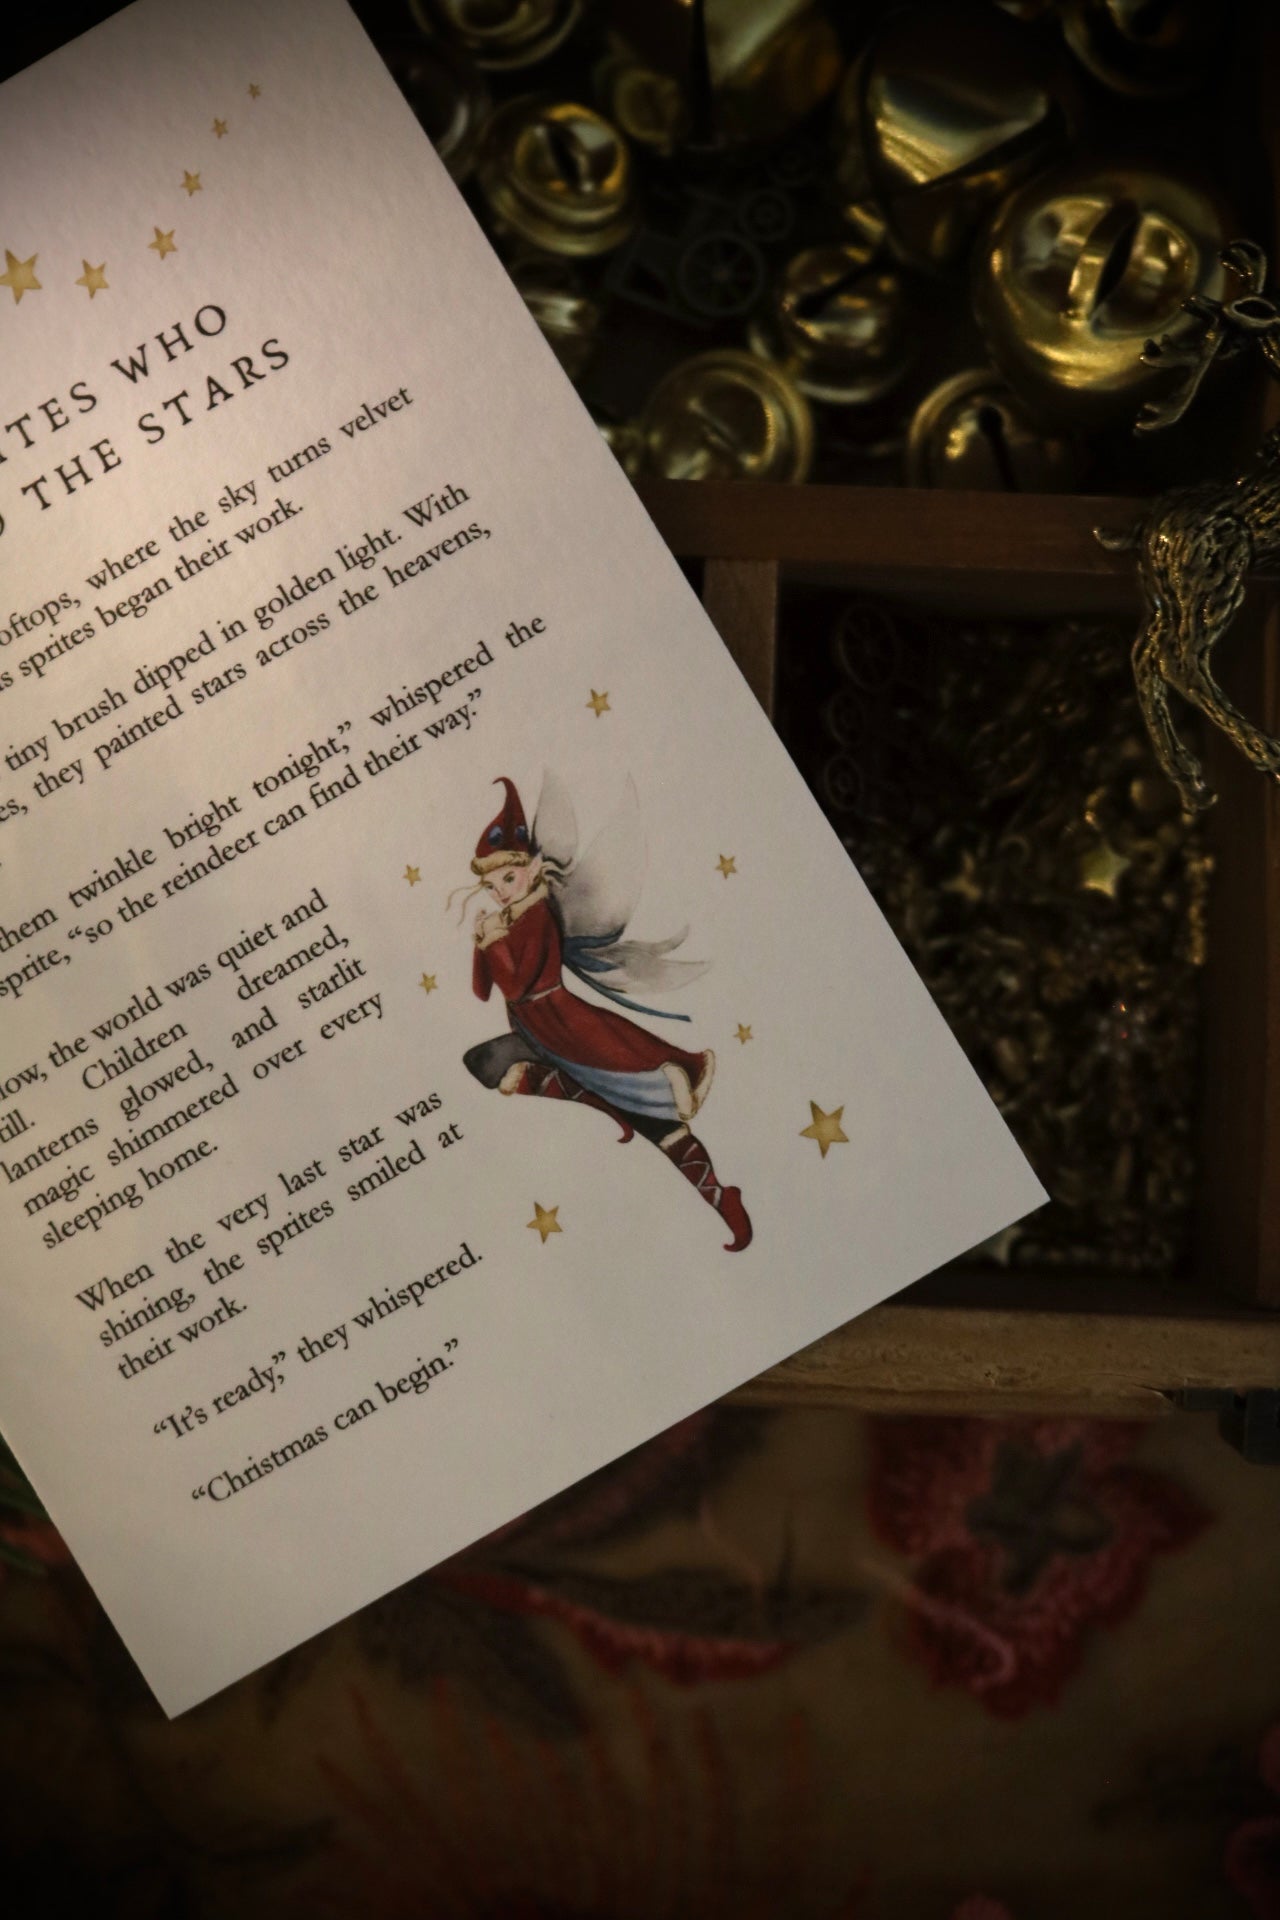 WHO
THE STARS
where the sky turns velvet
sprites began their work.
tiny brush dipped in golden light. With
they painted stars across the heavens,
them twinkle bright tonight,” whispered the
sprite, “so the reindeer can find their way.”
the world was quiet and
Children dreamed,
lanterns glowed, and starlit
magic shimmered over every
sleeping home.
When the very last star was
shining, the sprites smiled at
their work.
“It’s ready,” they whispered.
“Christmas can begin.”